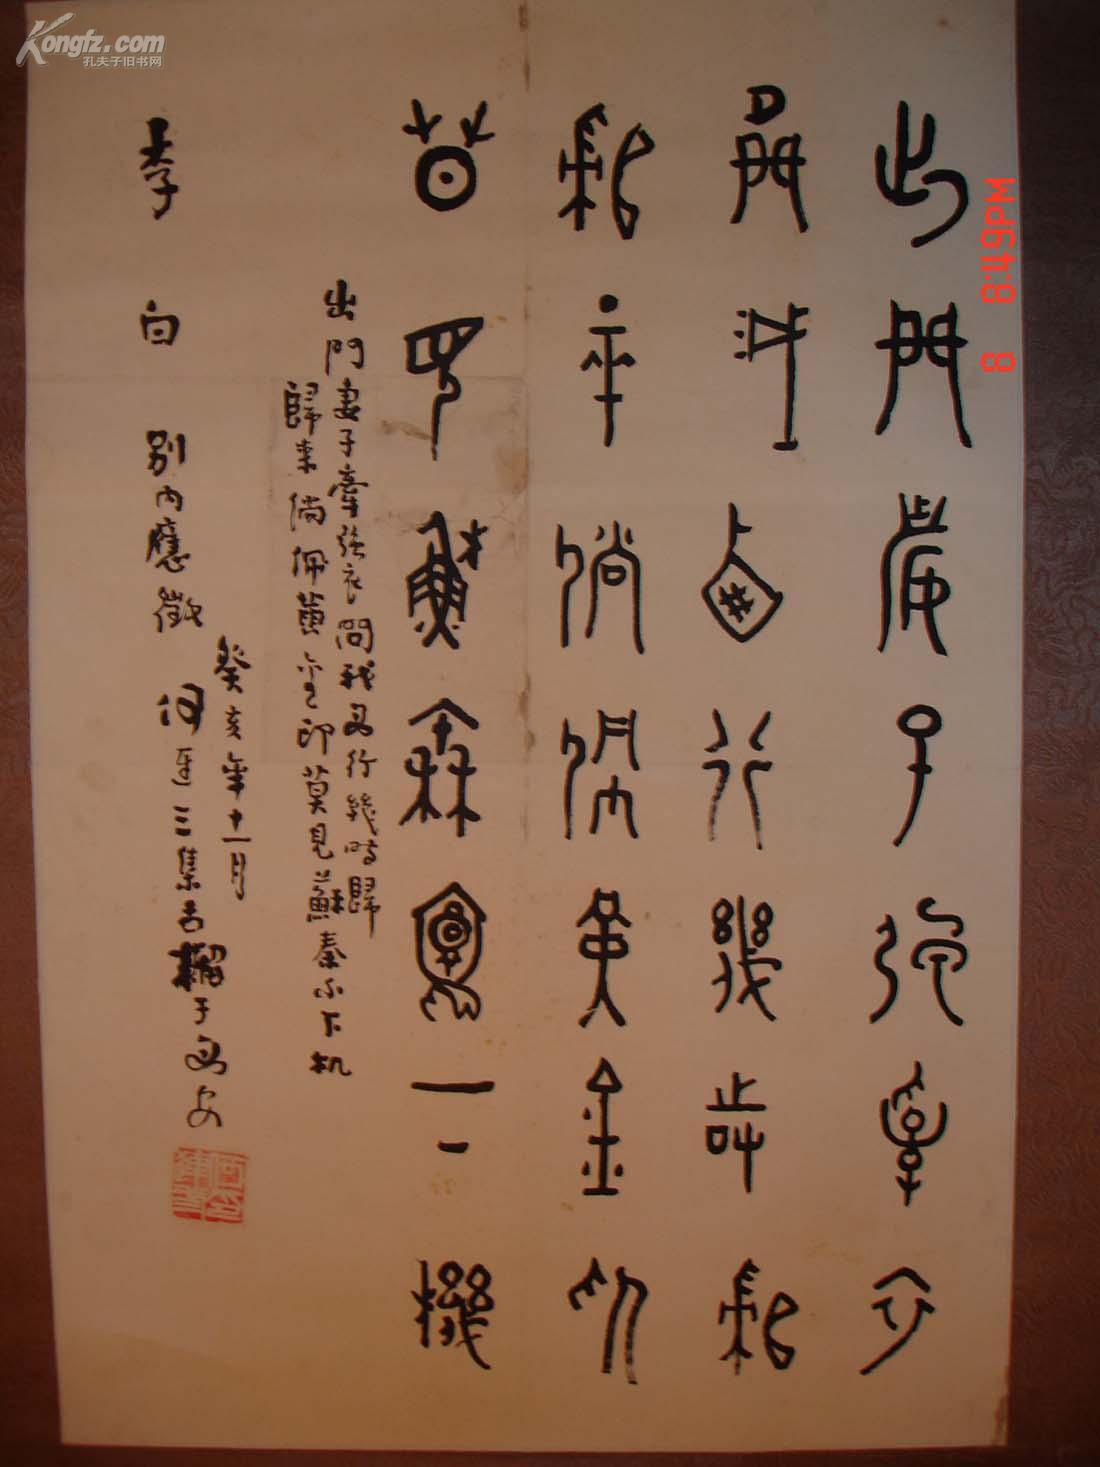 出門妻子強牽衣
問我西行幾時歸
歸來倘佩黃金印
莫見蘇秦不下機
出門妻子牽強衣問我西行幾時歸
歸來倘佩黃金印莫見蘇秦不下机
李白 別内應徵
癸亥年十一月
集古籀于西安
Kongfz.com
孔夫子旧书网
8 8:49PM